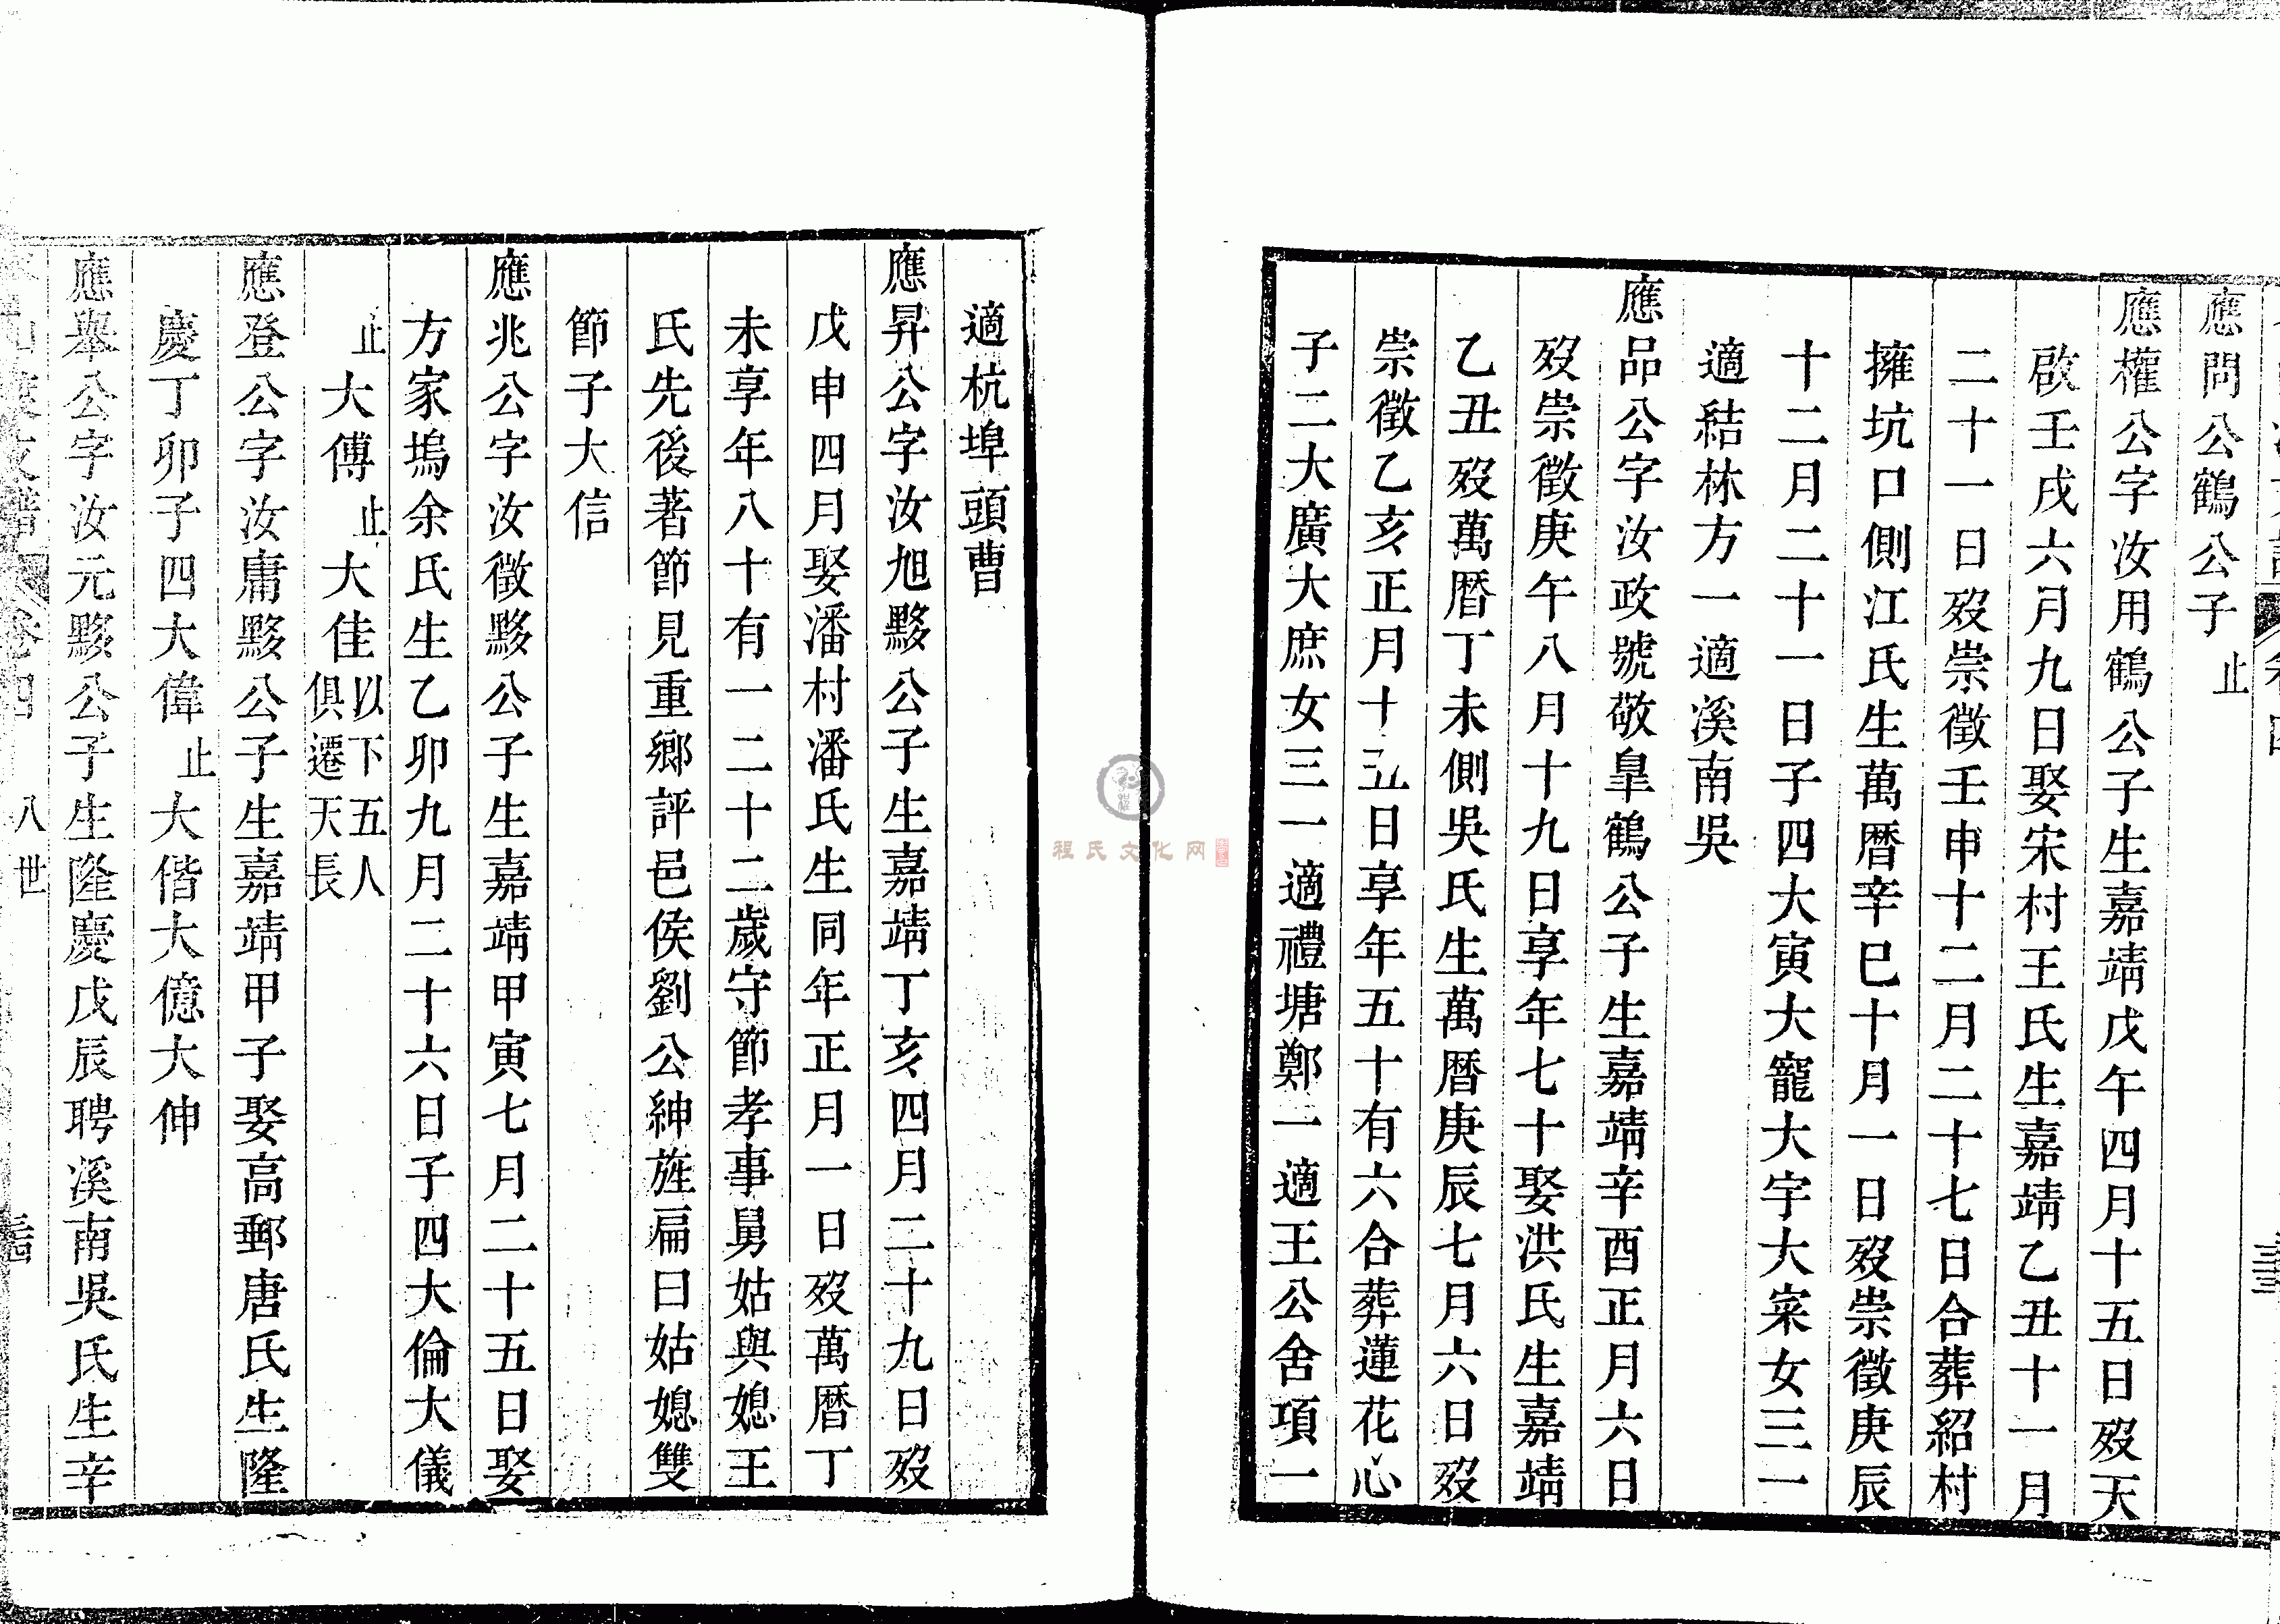 應問公鶴公子止
應權公字汝用鶴公子生嘉靖戊午四月十五日歿天
啟壬戌六月九日娶宋村王氏生嘉靖乙丑十一月
二十一日歿崇徵壬申十二月二十七日合葬紹村
擁坑口側江氏生萬曆辛巳十月一日歿崇徵庚辰
十二月二十一日子四大寅大寵大宇大寀女三一
適結林方一適溪南吳
應品公字汝政號敬臯鶴公子生嘉靖辛酉正月六日
歿崇徵庚午八月十九日享年七十娶洪氏生嘉靖
乙丑歿萬曆丁未側吳氏生萬曆庚辰七月六日歿
崇徵乙亥正月十五日享年五十有六合葬蓮花心
子二大廣大庶女三一適禮塘鄭一適王公舍項一
適杭埠頭曹
應昇公字汝旭黟公子生嘉靖丁亥四月二十九日歿
戊申四月娶潘村潘氏生同年正月一日歿萬曆丁
未享年八十有一二十二歲守節孝事舅姑與媳王
氏先後著節見重鄉評邑侯劉公紳旌扁曰姑媳雙
節子大信
應兆公字汝徵黟公子生嘉靖甲寅七月二十五日娶
方家塢余氏生乙卯九月二十六日子四大倫大儀
止大傅止大佳以下五人俱遷天長
應登公字汝庸黟公子生嘉靖甲子娶高郵唐氏生隆
慶丁卯子四大偉止大偕大億大伸
應舉公字汝元黟公子生隆慶戊辰聘溪南吳氏生辛
八世
程氏文化网